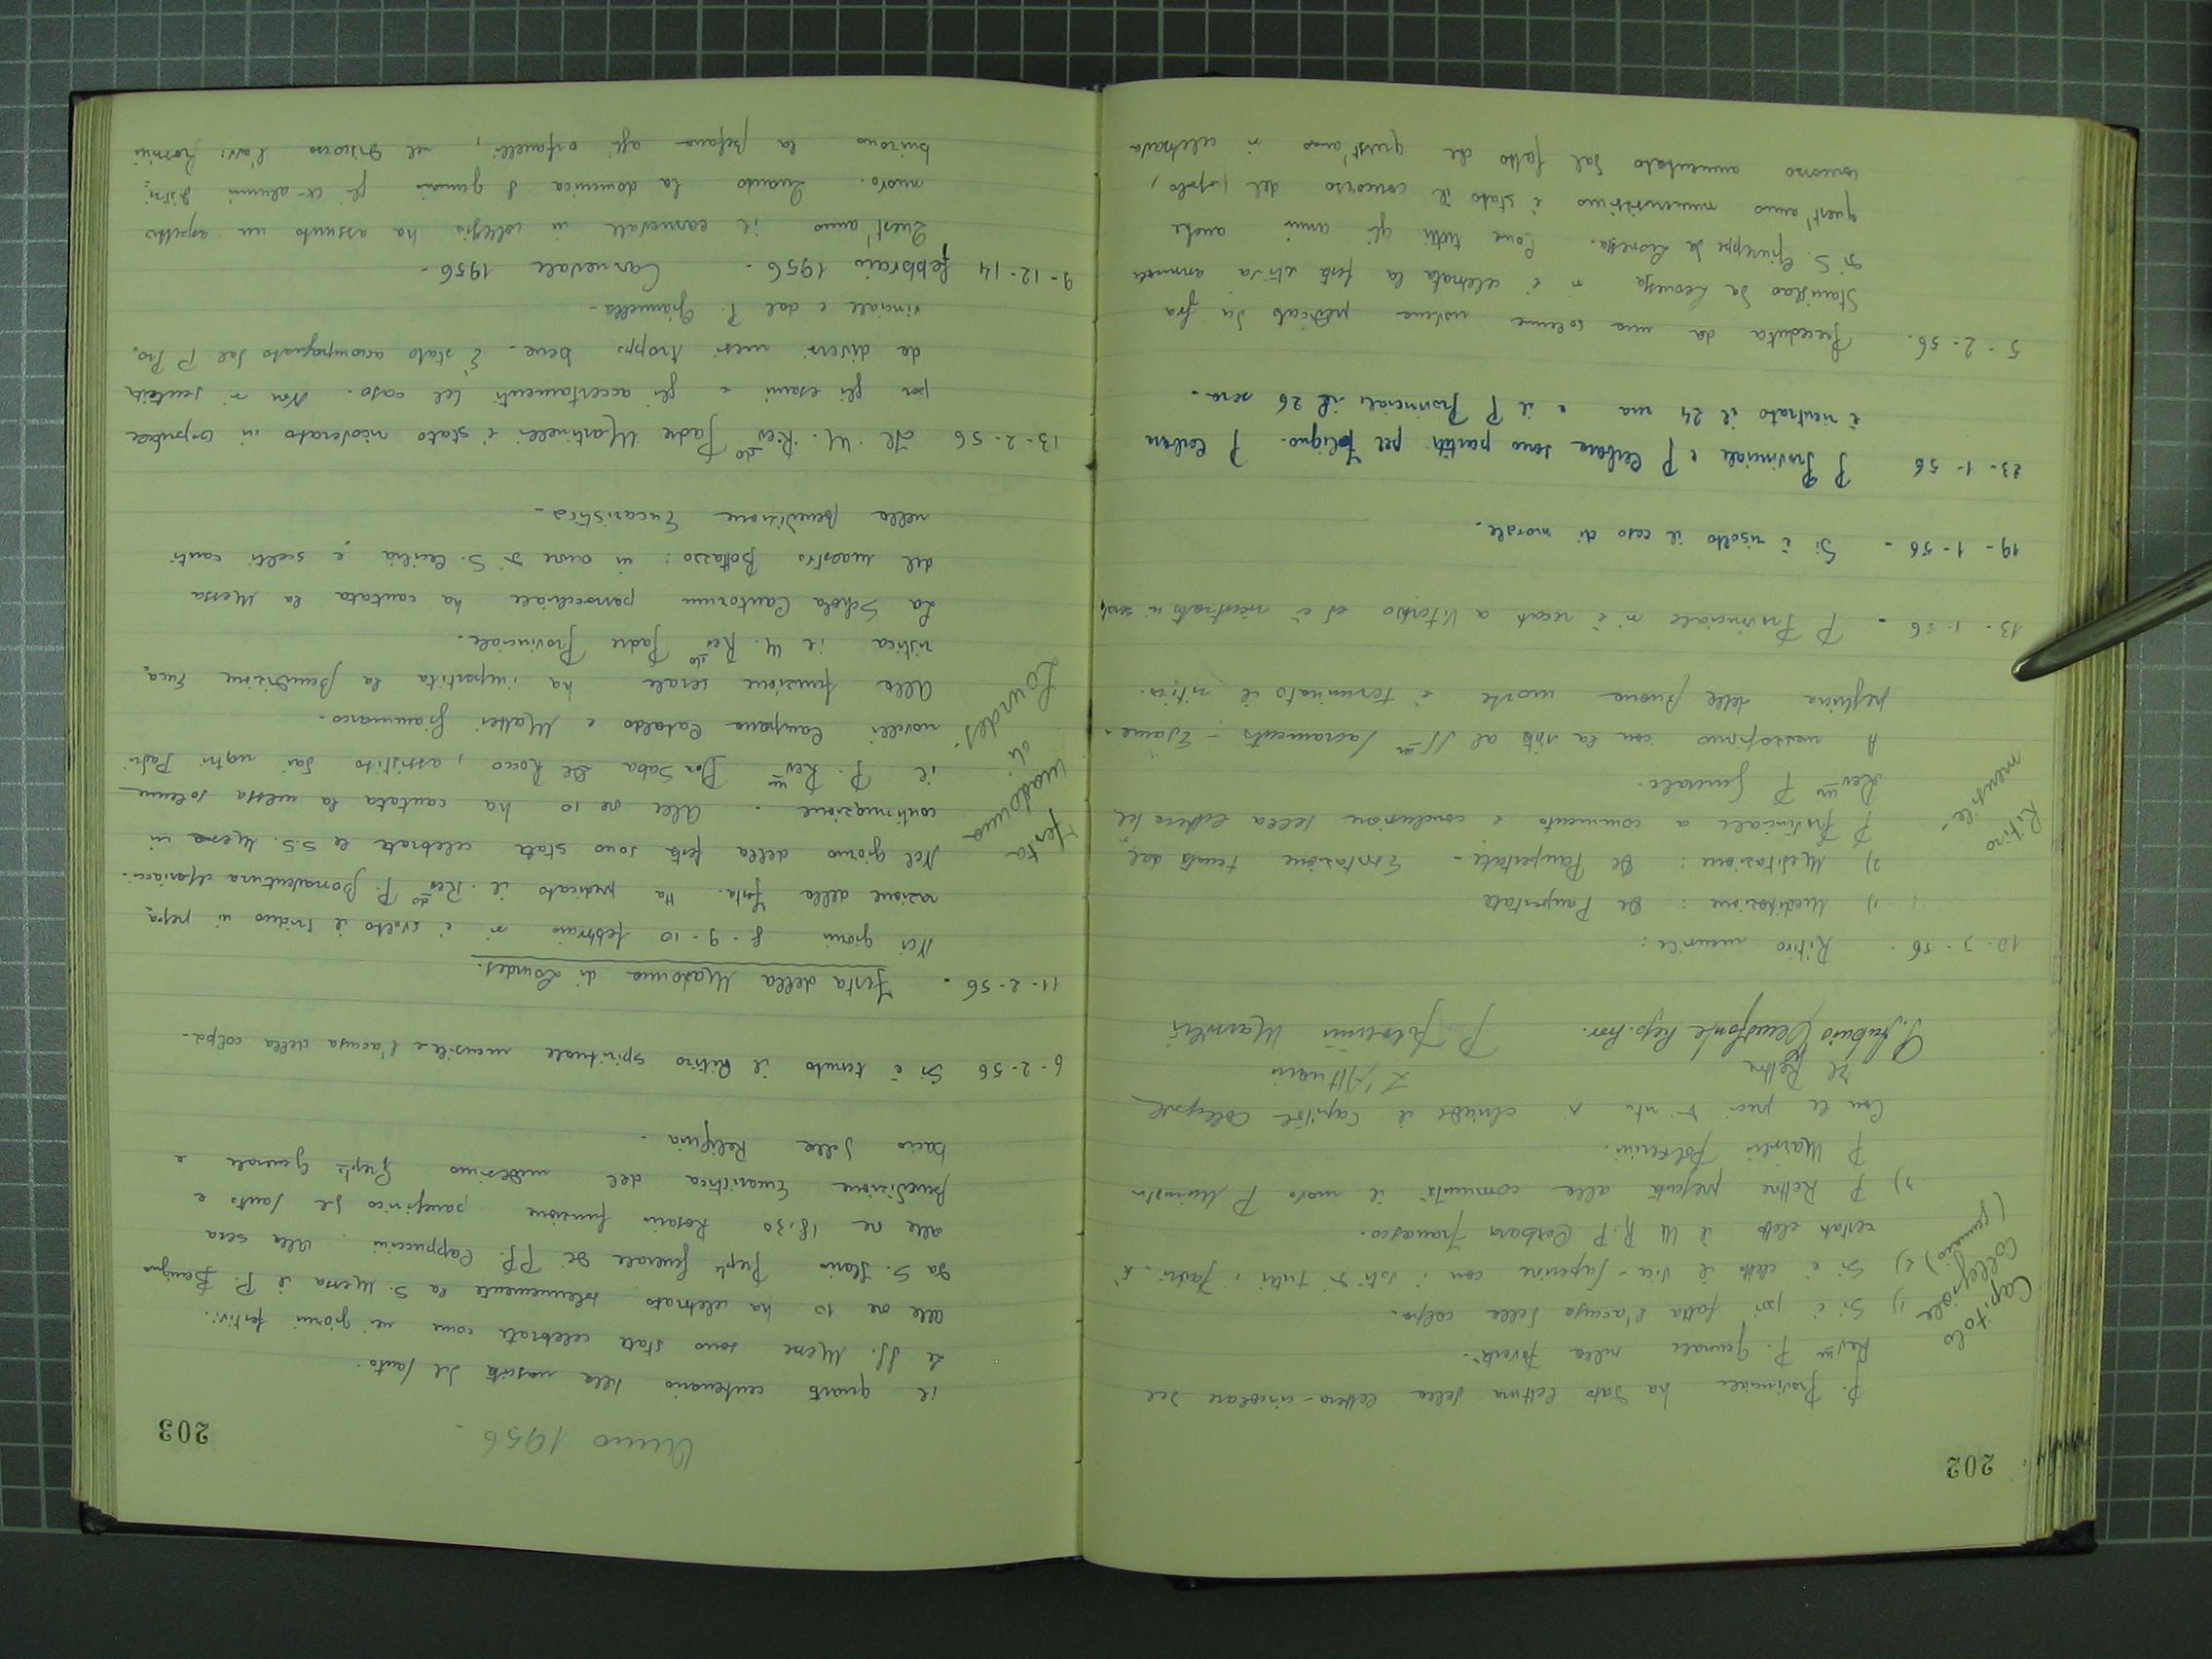 202
P. Provinciale ha dato lettura della lettera-circolare del
Rev.m P. Generale sulla povertà.
Capitolo
Collegiale
(gennaio)
1) Si è poi fatta l'accusa della colpa.
2) Si è eletto il vice-superiore con i voti di tutti i Padri. È
restato eletto il M. R. P. Corbara Francesco.
3) P. Rettore presenta alla comunità il nuovo P. Ministro
P. Marsilii
Con le preci di rito si chiude il Capitolo Collegiale
Il Rettore
L'Attuario
P. Marsilii
10-1-56. Ritiro mensile:
Ritiro
mensile.
1) Meditazione: De Paupertate
2) Meditazione: De Paupertate - Esortazione tenuta dal
P. Provinciale a commento e conclusione della lettera del
Rev.m P. Generale.
A mezzogiorno con la visita al SS.m Sacramento - Esame.
preghiera della buona morte è terminato il ritiro.
13-1-56 - P. Provinciale si è recato a Viterbo ed è rientrato in serata
19-1-56 - Si è risolto il caso di morale.
23-1-56 P. Provinciale e P. Corbara sono partiti per Foligno. P. Corbara
è rientrato il 24 ma e il P. Provinciale il 26 sera.
5-2-56. Preceduta da una solenne novena predicata da fra
Stanislao da Leonessa si è celebrata la festa annuale
di S. Giuseppe da Leonessa. Come tutti gli anni anche
quest'anno numerosissimo è stato il concorso del popolo,
concorso aumentato dal fatto che quest'anno si celebrava
203
Anno 1956 -
il quarto centenario della nascita del Santo.
Le SS. Messe sono state celebrate come nei giorni festivi.
Alle ore 10 ha celebrato solennemente la S. Messa il P. Benigno
da S. Ilario Segr. Generale dei PP. Cappuccini. Alla sera
alle ore 18,30 Rosario funzione panegirico del Santo e
Benedizione Eucaristica del medesimo Segr. Generale e
bacio della Reliquia.
6-2-56 Si è tenuto il Ritiro spirituale mensile e l'accusa della colpa.
11-2-56. Festa della Madonna di Lourdes.
Nei giorni 8-9-10 febbraio si è svolto il triduo in prepa-
razione della festa. Ha predicato il Rev.do P. Bonaventura
Festa
Madonna
di
Lourdes
Nel giorno della festa sono state celebrate le S.S. Messe in
continuazione. Alle ore 10 ha cantata la messa solenne
il P. Rev.m Don Saba De Rocco, assistito dai nostri Padri
novelli Campana Cataldo e Mattei Gianmarco.
Alla funzione serale ha impartita la Benedizione Euca-
ristica il M. Rev.do Padre Provinciale.
La Schola Cantorum parrocchiale ha cantata la Messa
del maestro Bottazzo: in onore di S. Cecilia e scelti canti
nella benedizione Eucaristica -
13-2-56 Il M. Rev.do Padre Martinelli è stato ricoverato in ospedale
per gli esami e gli accertamenti del caso. Non si sentiva
da diversi mesi troppo bene. È stato accompagnato dal P. Pro-
vinciale e dal P. Giannella -
9-12-14 febbraio 1956 - Carnevale 1956 -
Quest'anno il carnevale in collegio ha assunto un aspetto
nuovo. Quando la domenica 8 gennaio gli ex-alunni distri-
buirono la befana agli orfanelli, nel discorso l'avv.